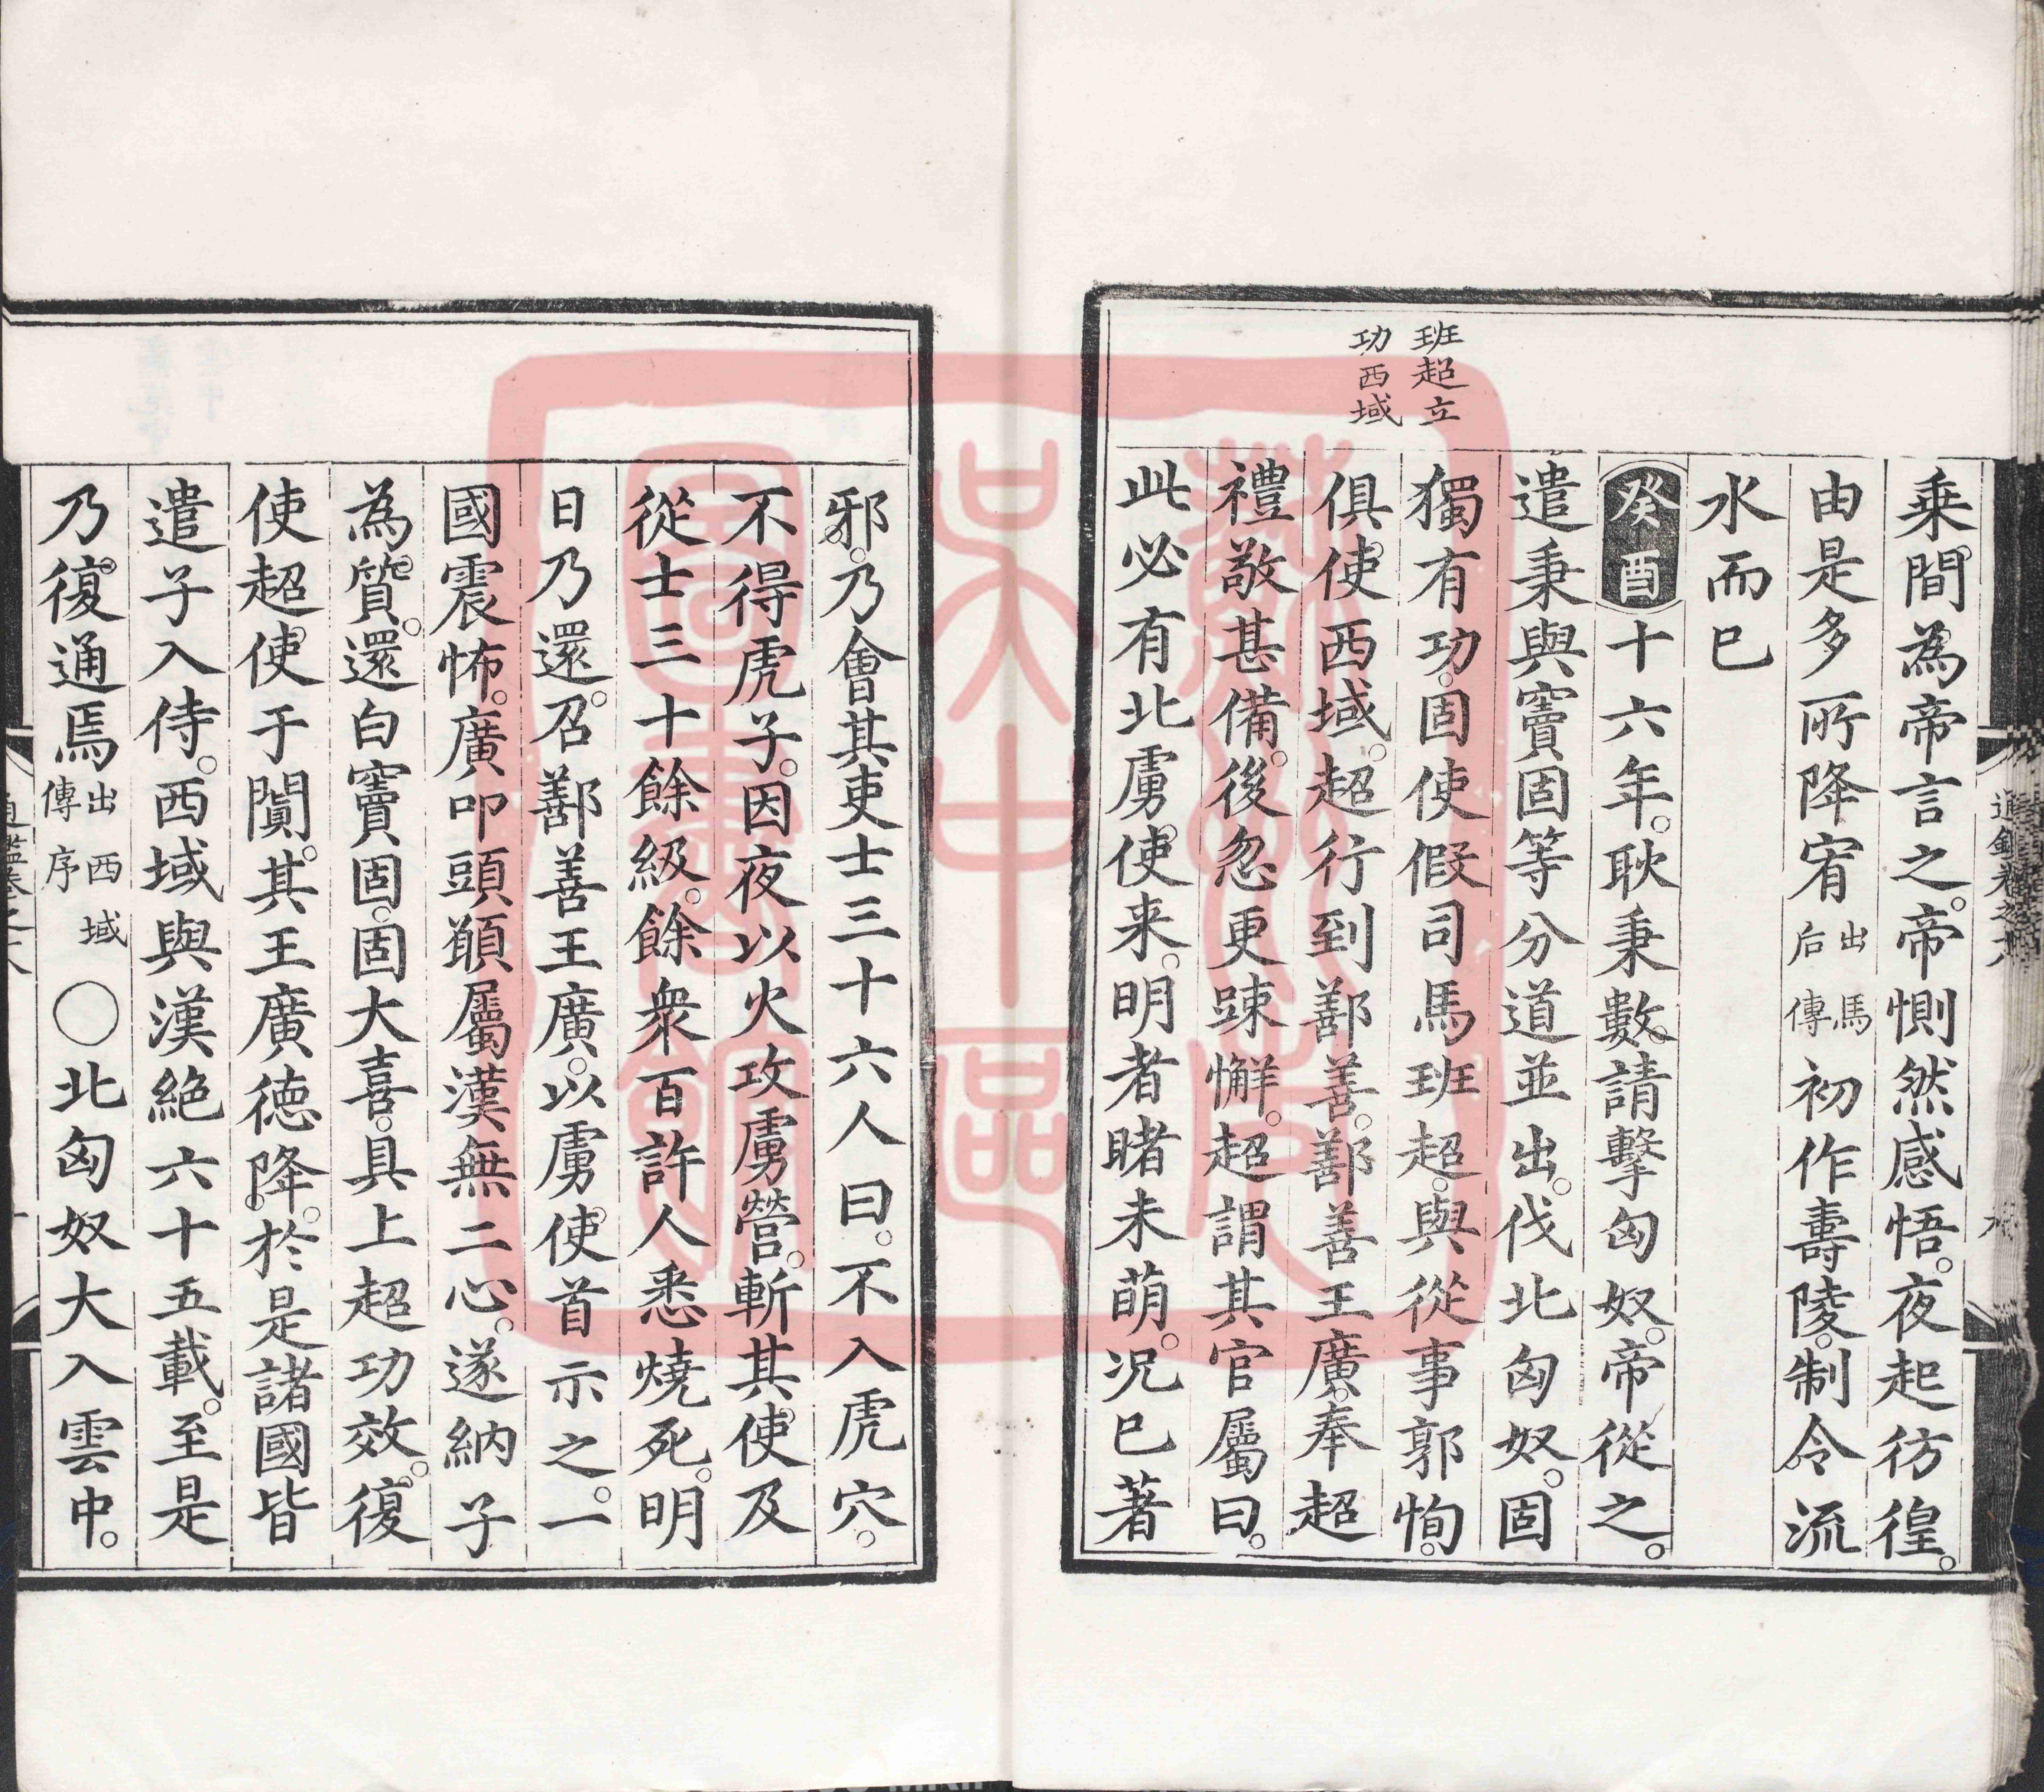 班超立
功西域
乗間為帝言之。帝惻然感悟。夜起彷徨。
由是多所降宥出馬后傳初作壽陵。制令流
水而已
癸酉十六年。耿秉數請擊匈奴。帝從之。
遣秉與竇固等分道並出。伐北匈奴。固
獨有功。固使假司馬班超。與從事郭恂。
俱使西域。超行到鄯善。鄯善王廣。奉超
禮敬甚備。後忽更踈懈。超謂其官屬曰。
此必有北虜使来。明者睹未萌。况已著
邪。乃會其吏士三十六人曰。不入虎穴。
不得虎子。因夜以火攻虜營。斬其使及
從士三十餘級。餘衆百許人悉燒死。明
日乃還。召鄯善王廣。以虜使首示之。一
國震怖。廣叩頭願屬漢無二心。遂納子
為質。還白竇固。固大喜。具上超功效。復
使超使于闐。其王廣德降。於是諸國皆
遣子入侍。西域與漢絶六十五載。至是
乃復通焉出西域傳序〇北匈奴大入雲中。
蘇州市
吳中區
圖書館